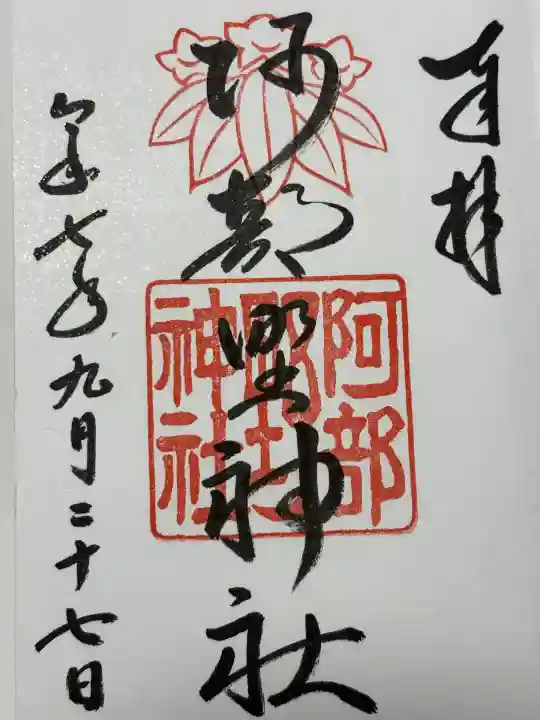 奉拝
阿部野神社
阿部
神社
令和七年九月二十七日